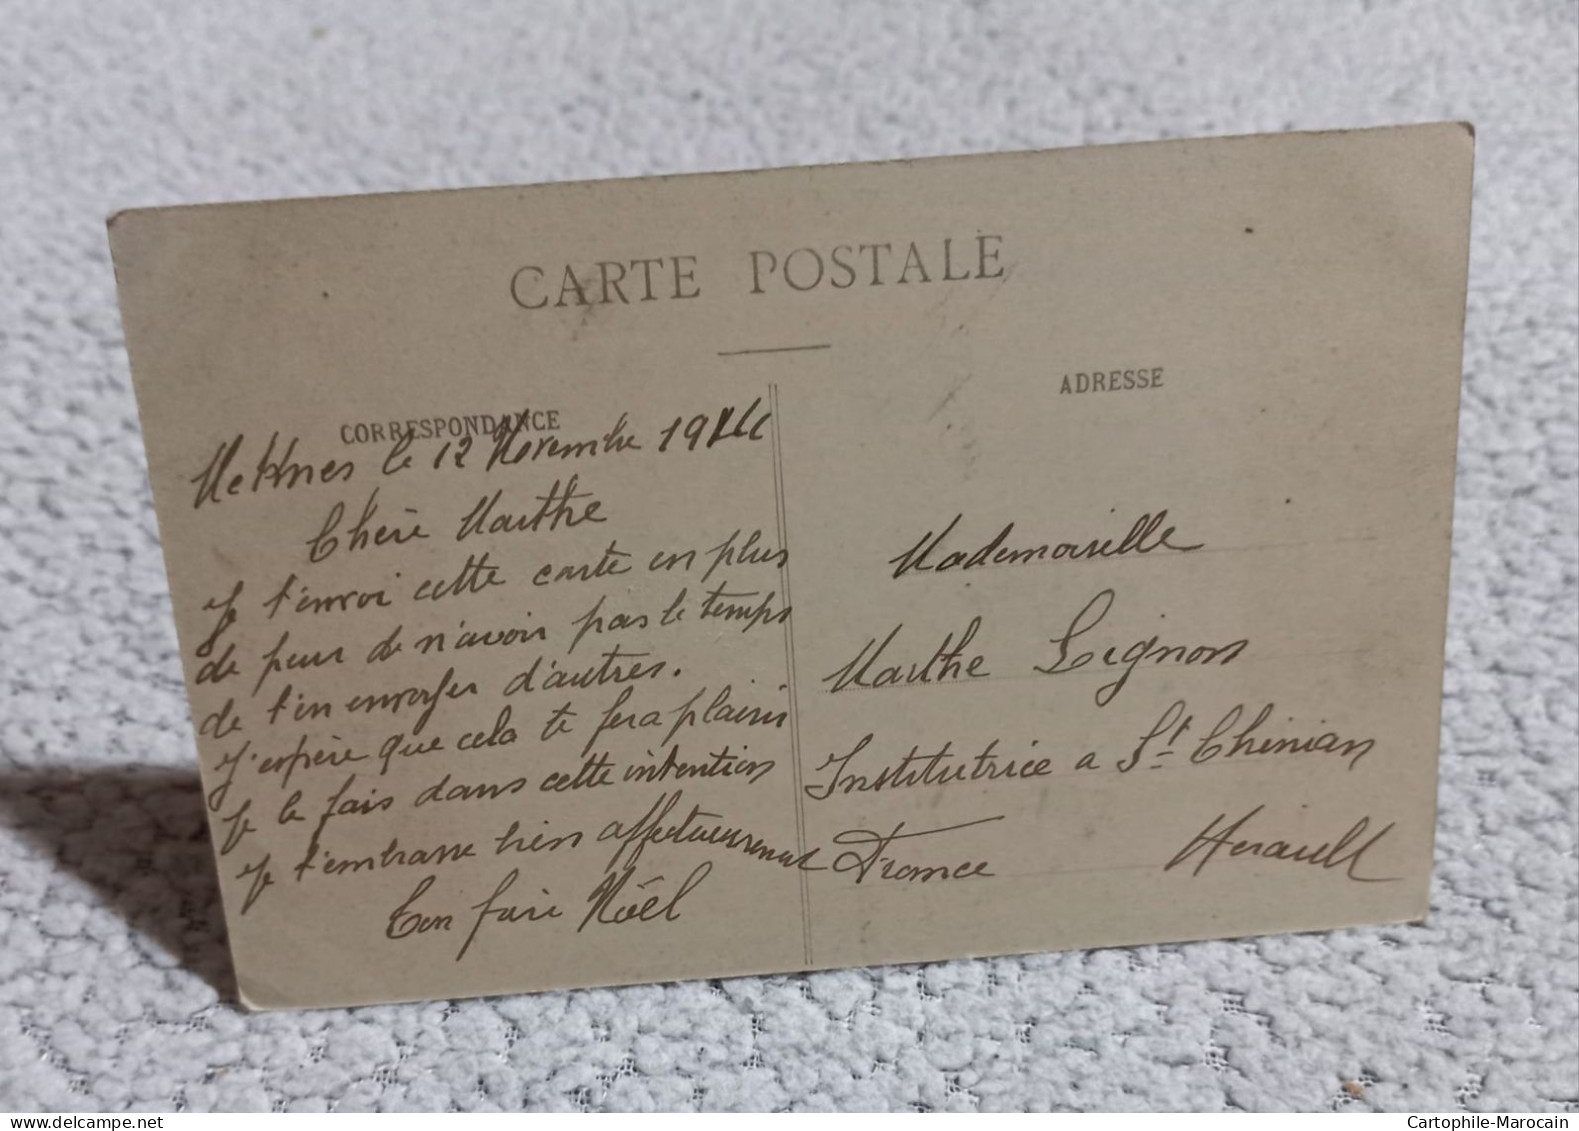 CARTE POSTALE
CORRESPONDANCE
Meknes le 12 Novembre 1914
Chère Marthe
Je t'envoi cette carte en plus
de peur de n'avoir pas le temps
de t'en envoyer d'autres.
J'espère que cela te fera plaisir
je le fais dans cette intention
Je t'embrasse bien affectueusement
Ton frère Noël
ADRESSE
Mademoiselle
Marthe Lignon
Institutrice a St Chinian
France Herault
delcampe.net
Cartophile-Marocain